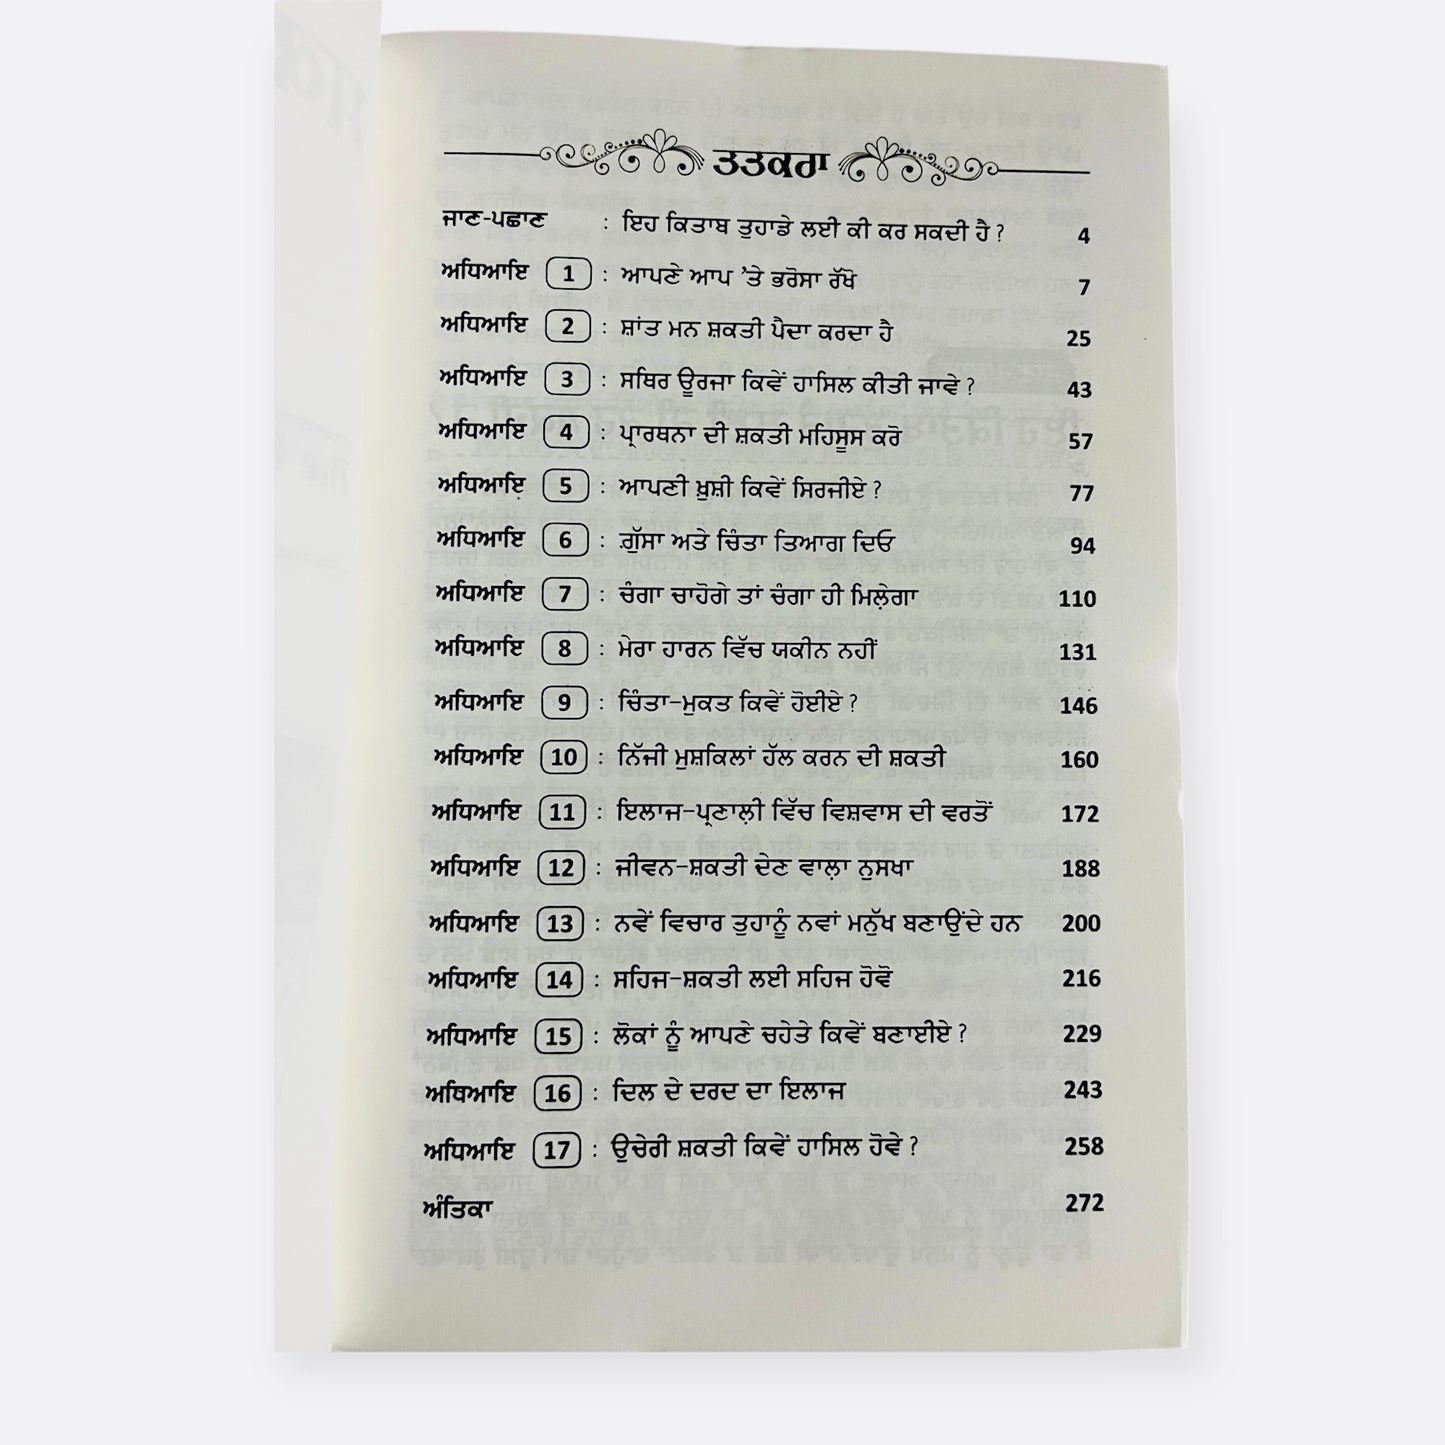 ਤਤਕਰਾ
ਜਾਣ-ਪਛਾਣ : ਇਹ ਕਿਤਾਬ ਤੁਹਾਡੇ ਲਈ ਕੀ ਕਰ ਸਕਦੀ ਹੈ ? 4
ਅਧਿਆਇ 1 : ਆਪਣੇ ਆਪ ’ਤੇ ਭਰੋਸਾ ਰੱਖੋ 7
ਅਧਿਆਇ 2 : ਸ਼ਾਂਤ ਮਨ ਸ਼ਕਤੀ ਪੈਦਾ ਕਰਦਾ ਹੈ 25
ਅਧਿਆਇ 3 : ਸਥਿਰ ਊਰਜਾ ਕਿਵੇਂ ਹਾਸਿਲ ਕੀਤੀ ਜਾਵੇ ? 43
ਅਧਿਆਇ 4 : ਪ੍ਰਾਰਥਨਾ ਦੀ ਸ਼ਕਤੀ ਮਹਿਸੂਸ ਕਰੋ 57
ਅਧਿਆਇ 5 : ਆਪਣੀ ਖ਼ੁਸ਼ੀ ਕਿਵੇਂ ਸਿਰਜੀਏ ? 77
ਅਧਿਆਇ 6 : ਗ਼ੁੱਸਾ ਅਤੇ ਚਿੰਤਾ ਤਿਆਗ ਦਿਓ 94
ਅਧਿਆਇ 7 : ਚੰਗਾ ਚਾਹੋਗੇ ਤਾਂ ਚੰਗਾ ਹੀ ਮਿਲ਼ੇਗਾ 110
ਅਧਿਆਇ 8 : ਮੇਰਾ ਹਾਰਨ ਵਿੱਚ ਯਕੀਨ ਨਹੀਂ 131
ਅਧਿਆਇ 9 : ਚਿੰਤਾ-ਮੁਕਤ ਕਿਵੇਂ ਹੋਈਏ ? 146
ਅਧਿਆਇ 10 : ਨਿੱਜੀ ਮੁਸ਼ਕਿਲਾਂ ਹੱਲ ਕਰਨ ਦੀ ਸ਼ਕਤੀ 160
ਅਧਿਆਇ 11 : ਇਲਾਜ-ਪ੍ਰਣਾਲ਼ੀ ਵਿੱਚ ਵਿਸ਼ਵਾਸ ਦੀ ਵਰਤੋਂ 172
ਅਧਿਆਇ 12 : ਜੀਵਨ-ਸ਼ਕਤੀ ਦੇਣ ਵਾਲ਼ਾ ਨੁਸਖਾ 188
ਅਧਿਆਇ 13 : ਨਵੇਂ ਵਿਚਾਰ ਤੁਹਾਨੂੰ ਨਵਾਂ ਮਨੁੱਖ ਬਣਾਉਂਦੇ ਹਨ 200
ਅਧਿਆਇ 14 : ਸਹਿਜ-ਸ਼ਕਤੀ ਲਈ ਸਹਿਜ ਹੋਵੋ 216
ਅਧਿਆਇ 15 : ਲੋਕਾਂ ਨੂੰ ਆਪਣੇ ਚਹੇਤੇ ਕਿਵੇਂ ਬਣਾਈਏ ? 229
ਅਧਿਆਇ 16 : ਦਿਲ ਦੇ ਦਰਦ ਦਾ ਇਲਾਜ 243
ਅਧਿਆਇ 17 : ਉਚੇਰੀ ਸ਼ਕਤੀ ਕਿਵੇਂ ਹਾਸਿਲ ਹੋਵੇ ? 258
ਅੰਤਿਕਾ 272